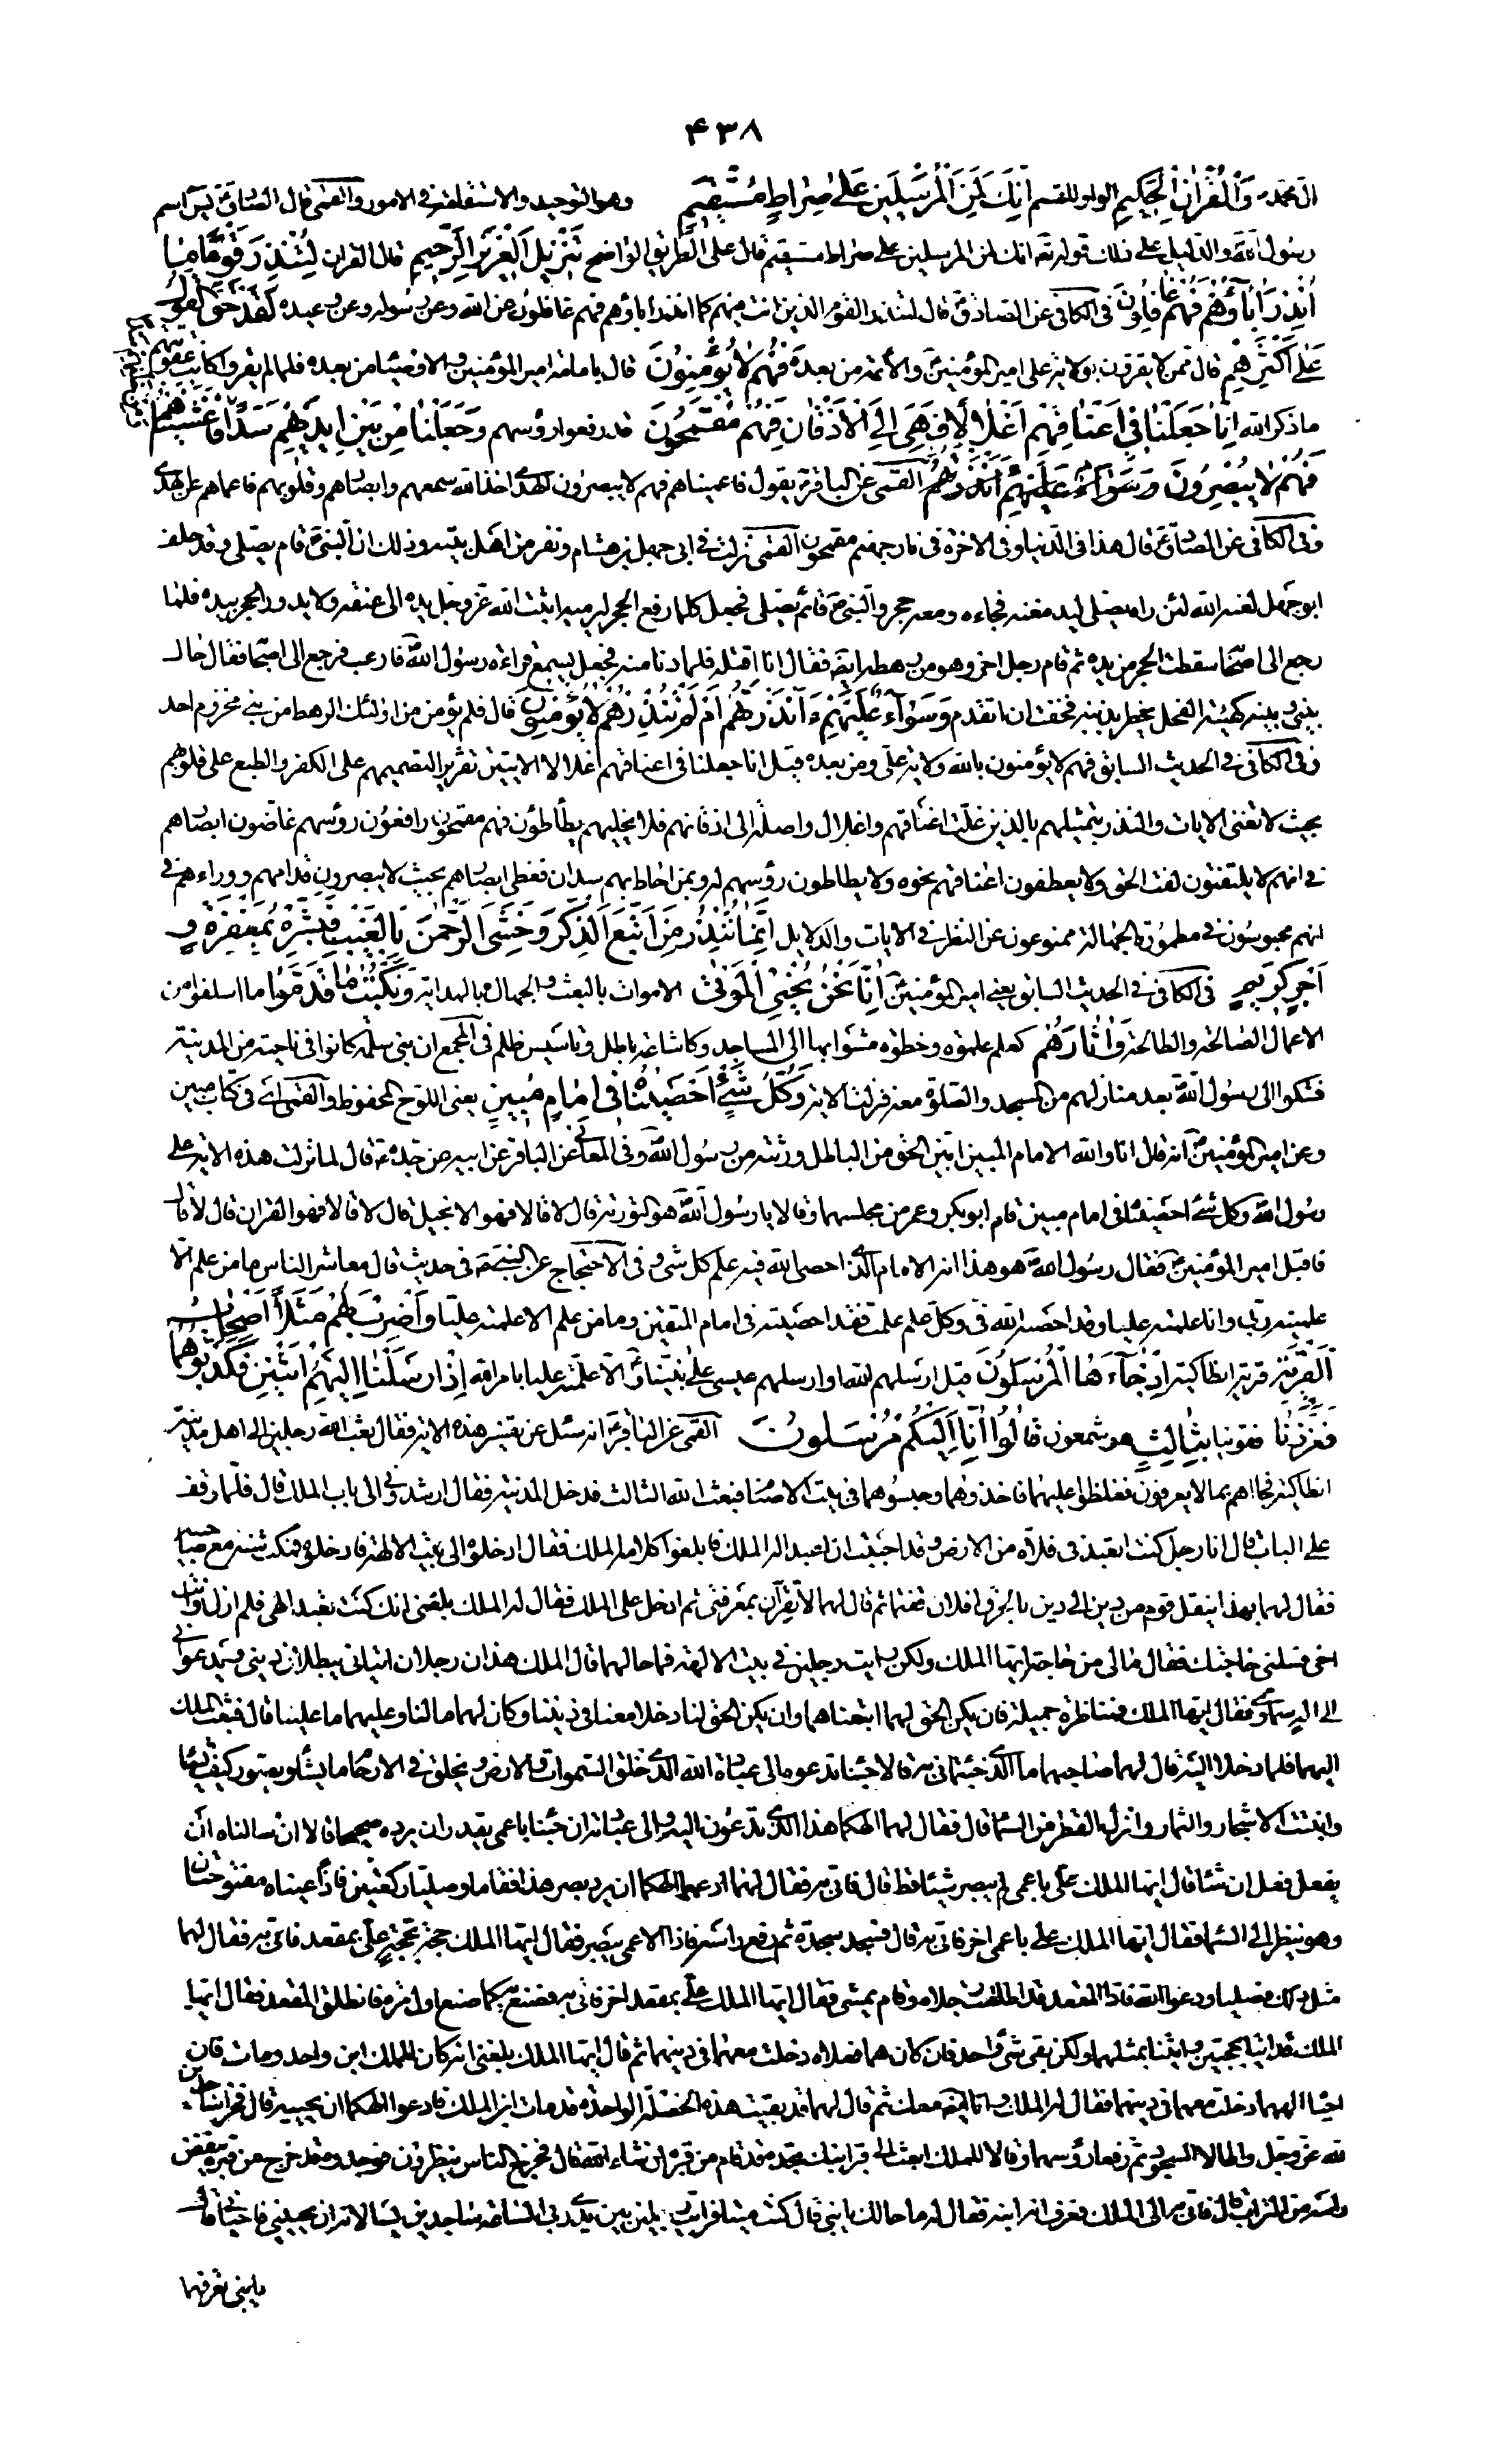 ۴۳۸
ال محمد وَالْقُرْآنِ الْحَكِيمِ الواو للقسم اِنَّكَ لَمِنَ الْمُرْسَلِينَ عَلىٰ صِرٰاطٍ مُسْتَقِيمٍ وهو التوحيد والاستقامة في الامور والقمي قال الصادق يس اسم
رسول الله والدليل على ذلك قوله تعه انك لمن المرسلين على صراط مستقيم قال على الطريق الواضح تَنْزِيلَ الْعَزِيزِ الرَّحِيمِ قال القران لِتُنْذِرَ قَوْمًا مٰا
اُنْذِرَ اٰبٰاؤُهُمْ فَهُمْ غٰافِلُونَ في الكافي عن الصادق قال لتنذر القوم الذين انت فيهم كما انذر اباؤهم فهم غافلون عن الله وعن رسوله وعن وعيده لَقَدْ حَقَّ الْقَوْلُ
عَلىٰ اَكْثَرِهِمْ قال ممن لا يقرون بولاية علي امير المؤمنين والأئمة من بعده فَهُمْ لاٰ يُؤْمِنُونَ قال بامامة امير المؤمنين والاوصياء من بعده فلما لم يقروا كانت عقوبتهم
ما ذكر الله اِنّٰا جَعَلْنٰا فِي اَعْنٰاقِهِمْ اَغْلاٰلاً فَهِيَ اِلَى الْاَذْقٰانِ فَهُمْ مُقْمَحُونَ قد رفعوا رؤسهم وَجَعَلْنٰا مِنْ بَيْنِ اَيْدِيهِمْ سَدًّا فَاَغْشَيْنٰاهُمْ
فَهُمْ لاٰ يُبْصِرُونَ وَسَوٰاءٌ عَلَيْهِمْ ءَاَنْذَرْتَهُمْ القمي عن الباقر يقول فاعميناهم فهم لا يبصرون الهدى اخذ الله سمعهم وابصارهم وقلوبهم فاعماهم عن الهدى
وفي الكافي عن الصادق قال هذا في الدنيا وفي الاخرة في نار جهنم مقمحون القمي نزلت في ابي جهل بن هشام ونفر من اهل بيته وذلك ان النبي قام يصلي وقد حلف
ابو جهل لعنه الله لئن راه يصلي ليدمغنه فجاءه ومعه حجر والنبي قائم يصلي فجعل كلما رفع الحجر ليرميه اثبت الله عز وجل يده الى عنقه ولا يدور الحجر بيده فلما
رجع الى اصحابه سقط الحجر من يده ثم قام رجل اخر وهو من رهطه ايضا فقال انا اقتله فلما دنا منه فجعل يسمع قراءة رسول الله فارعب فرجع الى اصحابه فقال حال
بيني وبينه كهيئة الفحل يخطر بذنبه فخفت ان اتقدم وَسَوٰآءٌ عَلَيْهِمْ ءَاَنْذَرْتَهُمْ اَمْ لَمْ تُنْذِرْهُمْ لاٰ يُؤْمِنُونَ قال فلم يؤمن من اولئك الرهط من بني مخزوم احد
وفي الكافي في الحديث السابق فهم لا يؤمنون بالله ولاية علي ومن بعده قيل انا جعلنا في اعناقهم اغلالا الايتين تقرير لتصميمهم على الكفر والطبع على قلوبهم
بحيث لا تغني الايات والنذر بتمثيلهم بالذين غلت اعناقهم واغلال واصلة الى اذقانهم فلا تخليهم يطأطؤن فهم مقمحون رافعون رؤسهم غاضون ابصارهم
في انهم لا يلتفتون لفت الحق ولا يعطفون اعناقهم نحوه ولا يطاطون رؤسهم له وبمن احاط بهم سدان فغطى ابصارهم بحيث لا يبصرون قدامهم ووراءهم في
انهم محبوسون في مطمورة الجهالة ممنوعون عن النظر في الايات والدلايل اِنَّمٰا تُنْذِرُ مَنِ اتَّبَعَ الذِّكْرَ وَخَشِيَ الرَّحْمٰنَ بِالْغَيْبِ فَبَشِّرْهُ بِمَغْفِرَةٍ وَ
اَجْرٍ كَرِيمٍ في الكافي في الحديث السابق يعني امير المؤمنين اِنّٰا نَحْنُ نُحْيِي الْمَوْتىٰ الاموات بالبعث والجهال بالهداية وَنَكْتُبُ مٰا قَدَّمُوا ما اسلفوا من
الاعمال الصالحة والطالحة وَاٰثٰارَهُمْ كعلم علموه وخطوة مشوا بها الى المساجد وكاشاعة باطل وتاسيس ظلم في المجمع ان بني سلمة كانوا في ناحية من المدينة
فشكوا الى رسول الله بعد منازلهم من المسجد والصلوة معه فنزلت الاية وَكُلَّ شَيْءٍ اَحْصَيْنٰاهُ فِي اِمٰامٍ مُبِينٍ يعني اللوح المحفوظ والقمي اي في كتاب مبين
وعن امير المؤمنين انه قال انا والله الامام المبين ابين الحق من الباطل ورثته من رسول الله وفي المعاني عن الباقر عن ابيه عن جده قال لما نزلت هذه الاية على
رسول الله وكل شيء احصيناه في امام مبين قام ابو بكر وعمر من مجلسهما وقالا يا رسول الله هو التورية قال لا قالا فهو الانجيل قال لا قالا فهو القران قال لا قال
فاقبل امير المؤمنين فقال رسول الله هو هذا انه الامام الذي احصى الله فيه علم كل شيء وفي الاحتجاج عن النبي في حديث قال معاشر الناس ما من علم الا
علمنيه ربي وانا علمته عليا وقد احصاه الله في وكل علم علمت فقد احصيته في امام المتقين وما من علم الا علمته عليا وَاضْرِبْ لَهُمْ مَثَلاً اَصْحٰابَ
الْقَرْيَةِ قرية انطاكية اِذْ جٰآءَهَا الْمُرْسَلُونَ قيل ارسلهم الله او ارسلهم عيسى على نبينا و بامر الله اِذْ اَرْسَلْنٰا اِلَيْهِمُ اثْنَيْنِ فَكَذَّبُوهُمٰا
فَعَزَّزْنٰا فقوينا بِثٰالِثٍ هو شمعون فَقٰالُوا اِنّٰا اِلَيْكُمْ مُرْسَلُونَ القمي عن الباقر انه سئل عن تفسير هذه الاية فقال بعث الله رجلين الى اهل مدينة
انطاكية فجاءاهم بما لا يعرفون فغلظوا عليهما فاخذوهما وحبسوهما في بيت الاصنام فبعث الله الثالث فدخل المدينة فقال ارشدوني الى باب الملك قال فلما وقف
على الباب قال انا رجل كنت اتعبد في فلاة من الارض وقد احببت ان اعبد اله الملك فابلغوا كلامه الملك فقال ادخلوه الى بيت الالهة فادخلوه فمكث سنة مع صاحبيه
فقال لهما بهذا ينقل قوم من دين الى دين بالخرق افلا رفقتما ثم قال لهما لا تقران بمعرفتي ثم ادخل على الملك فقال له الملك بلغني انك كنت تعبد الهي فلم ازل وانت
اخي فسلني حاجتك فقال مالي من حاجة ايها الملك ولكن رايت رجلين في بيت الالهة فما حالهما قال الملك هذان رجلان اتياني يبطلان ديني ويدعواني
الى اله سماوي فقال ايها الملك فمناظرة جميلة فان يكن الحق لهما اتبعناهما وان يكن الحق لنا دخلا معنا في ديننا وكان لهما ما لنا وعليهما ما علينا قال فبعث الملك
اليهما فلما دخلا اليه قال لهما صاحبهما ما الذي جئتماني به قالا جئنا ندعو الى عبادة الله الذي خلق السموات والارض ويخلق في الارحام ما يشاء ويصور كيف يشاء
وانبت الاشجار والثمار وانزل القطر من السماء قال فقال لهما الهكما هذا الذي تدعون اليه والى عبادته ان جئنا باعمى يقدر ان يرده صحيحا قالا ان سالناه ان
يفعل فعل ان شاء قال ايها الملك علي باعمى لم يبصر شيئا قط قال فاتي به فقال لهما ادعوا الهكما ان يرد بصر هذا فقاما وصليا ركعتين فاذا عيناه مفتوحتان
وهو ينظر الى السماء فقال ايها الملك علي باعمى اخر فاتي به قال فسجد سجدة ثم رفع راسه فاذا الاعمى يبصر فقال ايها الملك حجة بحجة علي بمقعد فاتي به فقال لهما
مثل ذلك فصليا ودعوا الله فاذا المقعد قد اطلقت رجلاه وقام يمشي فقال ايها الملك علي بمقعد اخر فاتي به فصنع به كما صنع اول مرة فانطلق المقعد فقال ايها
الملك قد اتيا بحجتين واتينا بمثلهما ولكن بقي شيء واحد فان كان هما فعلاه دخلت معهما في دينهما ثم قال ايها الملك بلغني انه كان للملك ابن واحد ومات فان
احياه الههما دخلت معهما في دينهما فقال له الملك وانا ايضا معك ثم قال لهما قد بقيت هذه الخصلة الواحدة قد مات ابن الملك فادعوا الهكما ان يحييه قال فخرا ساجدين
لله عز وجل واطالا السجود ثم رفعا رؤسهما وقالا للملك ابعث الى قبر ابنك تجده قد قام من قبره ان شاء الله قال فخرج الناس ينظرون فوجدوه قد خرج من قبره ينفض
راسه من التراب قال فاتي به الى الملك فعرف انه ابنه فقال له ما حالك يا بني قال كنت ميتا فرايت رجلين بين يدي ربي الساعة ساجدين يسالانه ان يحييني فاحياني قال
يا بني تعرفهما